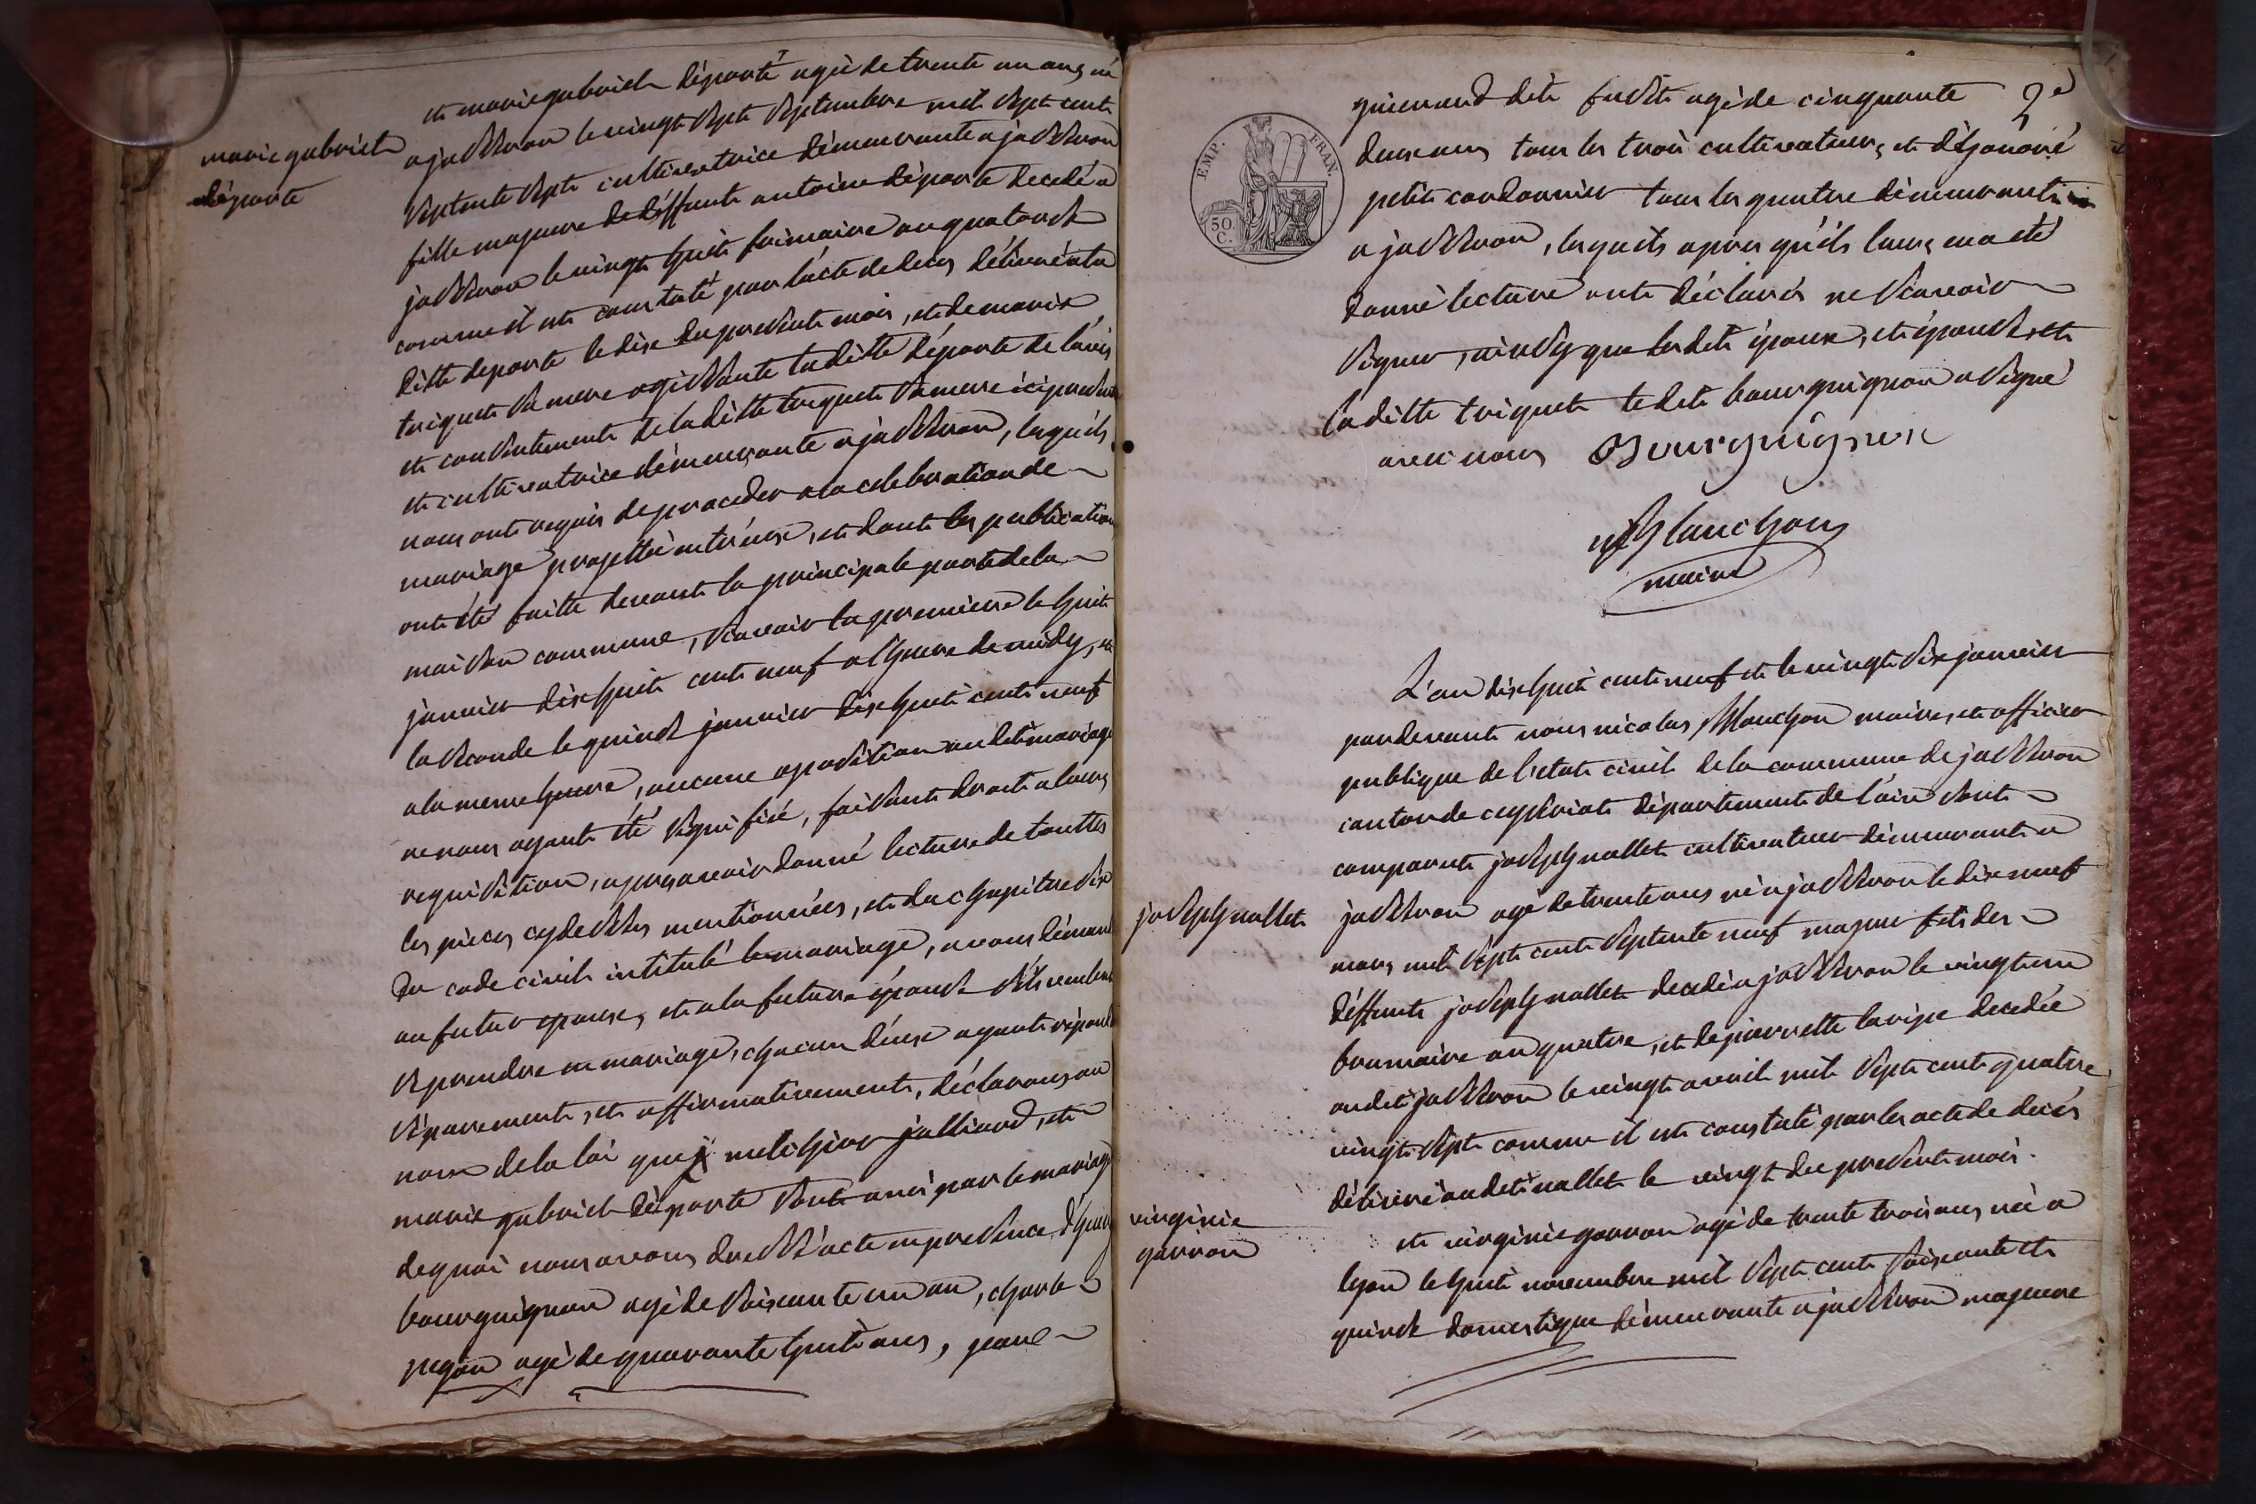 marie gabriel
déporte
et marie gabriel déporté agée de trente un ans né
a jasseron le vingt sept septembre mil sept cent
septente sept cultivatrice démeurante a jasseron
fille majeure de déffunt antoine déporte decedé a
jasseron le vingt huit frimaire an quatorse
comme il est constaté par lácte de deces délivré a la
ditte deporte le dix du present mois, et de marie
triquet sa mere agissante laditte déporte de lávis
et consentement de la ditte triquet sa mere ici presente
et cultivatrice démeurante a jasseron, lesquels
nous ont requis de proceder a la celebration de
mariage projetté entr'eux, et dont les publication
ont été faitte devant la principale porte de la
maison commune, scavoir la premiere le huit
janvier dix huit cent neuf a lheure de midy, et
la seconde le quinse janvier dix huit cent neuf
a la meme heure, aucune oposition audit mariage
ne nous ayant été signifié, faisant droit a leurs
requisition, apres avoir donné lecture de touttes
les pieces cy dessus mentionnées, et du chapitre six
du code civil intitulé le mariage, avons démandé
au futur epoux, et a la future épouse s'ils veulent
se prendre en mariage, chacun d'eux ayant répondu
séparement, et affirmativement, déclarons au
nom de la loi que melchior julliard, et
marie gabriel déporte sont unis par le mariage
de quoi nous avons dressé acte en presence d'
bourguignon agé de soixante un an, charle
pegon agé de quarante huit ans, jean
2e
EMP. FRAN.
50. C.
guienard dit agé de cinquante
deux ans tous les trois cultivateurs, et d'honoré
petit cordonnier tous les quatre démeurant
a jasseron, lesquels apres qu'ils leurs en a été
donné lecture ont déclarés ne scavoir
signer, ainsy que lesdits époux, et épouse et
laditte triquet ledit bourguignon a signé
avec nous Bourguignon
N Blanchon
maire
L'an dix huit cent neuf et le vingt six janvier
pardevant nous nicolas Blanchon maire, et officier
publique de l'etat civil de la commune de jasseron
canton de ceyseriat département de l'ain sont
comparut joseph nallet cultivateur démeurant a
joseph nallet
jasseron agé de trente ans né a jasseron le dix neuf
mars mil sept cent septente neuf majeur fils des
déffunts joseph nallet decedé a jasseron le vingt un
brumaire an quatre, et de pierrette lavigne decedée
audit jasseron le vingt avril mil sept cent quatre
vingt sept comme il est constaté par les acte de decés
délivré audit nallet le vingt du present mois.
virginie
garron
et virginie garron agé de trente trois ans née a
lyon le huit novembre mil sept cent soixante et
quinse domestique démeurante a jasseron majeure